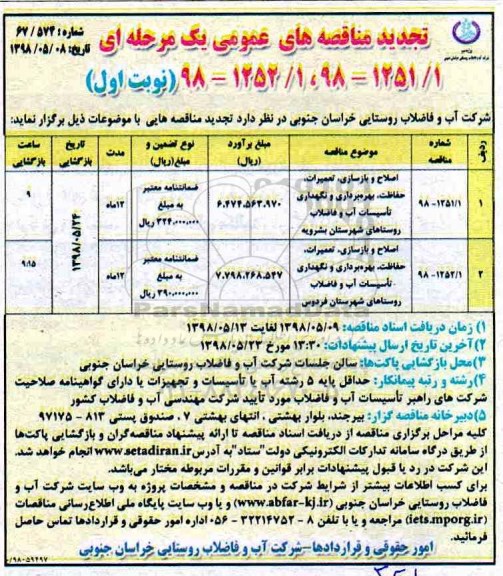 شماره: ۶۷/۵۷۴
تاریخ: ۱۳۹۸/۰۵/۰۸
تجدید مناقصه های عمومی یک مرحله ای
۹۸-۱۲۵۱/۱ ، ۹۸-۱۲۵۲/۱ (نوبت اول)
شرکت آب و فاضلاب روستایی خراسان جنوبی در نظر دارد تجدید مناقصه هایی با موضوعات ذیل برگزار نماید:
ردیف | شماره مناقصه | موضوع مناقصه | مبلغ برآورد (ریال) | نوع تضمین و مبلغ(ریال) | مدت | تاریخ بازگشایی | ساعت بازگشایی
۱ | ۹۸-۱۲۵۱/۱ | اصلاح و بازسازی، تعمیرات، حفاظت، بهره‌برداری و نگهداری تأسیسات آب و فاضلاب روستاهای شهرستان بشرویه | ۶.۴۷۴.۵۶۳.۹۷۰ | ضمانتنامه معتبر به مبلغ ۳۲۴.۰۰۰.۰۰۰ ریال | ۱۲ماه | ۱۳۹۸/۰۵/۲۴ | ۹
۲ | ۹۸-۱۲۵۲/۱ | اصلاح و بازسازی، تعمیرات، حفاظت، بهره‌برداری و نگهداری تأسیسات آب و فاضلاب روستاهای شهرستان فردوس | ۷.۷۹۸.۲۶۸.۵۴۷ | ضمانتنامه معتبر به مبلغ ۳۹۰.۰۰۰.۰۰۰ ریال | ۱۲ماه | ۹:۱۵
۱) زمان دریافت اسناد مناقصه: ۱۳۹۸/۰۵/۰۹ لغایت ۱۳۹۸/۰۵/۱۳
۲)آخرین تاریخ ارسال پیشنهادات: ۱۳:۳۰ مورخ ۱۳۹۸/۰۵/۲۳
۳)محل بازگشایی پاکت‌ها: سالن جلسات شرکت آب و فاضلاب روستایی خراسان جنوبی
۴)رشته و رتبه پیمانکار: حداقل پایه ۵ رشته آب یا تأسیسات و تجهیزات یا دارای گواهینامه صلاحیت
شرکت های راهبر تأسیسات آب و فاضلاب مورد تأیید شرکت مهندسی آب و فاضلاب کشور
۵)دبیرخانه مناقصه گزار: بیرجند، بلوار بهشتی ، انتهای بهشتی ۷ ، صندوق پستی ۸۱۳ - ۹۷۱۷۵
کلیه مراحل برگزاری مناقصه از دریافت اسناد مناقصه تا ارائه پیشنهاد مناقصه‌گران و بازگشایی پاکت‌ها
از طریق درگاه سامانه تدارکات الکترونیکی دولت"ستاد"به آدرس www.setadiran.ir انجام خواهد شد.
این شرکت در رد یا قبول پیشنهادات برابر قوانین و مقررات مربوطه مختار می‌باشد.
برای کسب اطلاعات بیشتر از شرایط شرکت در مناقصه و مشخصات پروژه به وب سایت شرکت آب و
فاضلاب روستایی خراسان جنوبی (www.abfar-kj.ir) و یا وب سایت پایگاه ملی اطلاع‌رسانی مناقصات
(iets.mporg.ir) مراجعه و یا با تلفن ۸ - ۳۲۲۱۴۷۵۲ - ۰۵۶ اداره امور حقوقی و قراردادها تماس حاصل
فرمائید.
امور حقوقی و قراردادها-شرکت آب و فاضلاب روستایی خراسان جنوبی